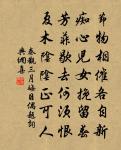 節物相催各自新
痴心兒女挽留春
芳菲歇去何須恨
夏木陰陰正可人
秦觀三月晦日偶題